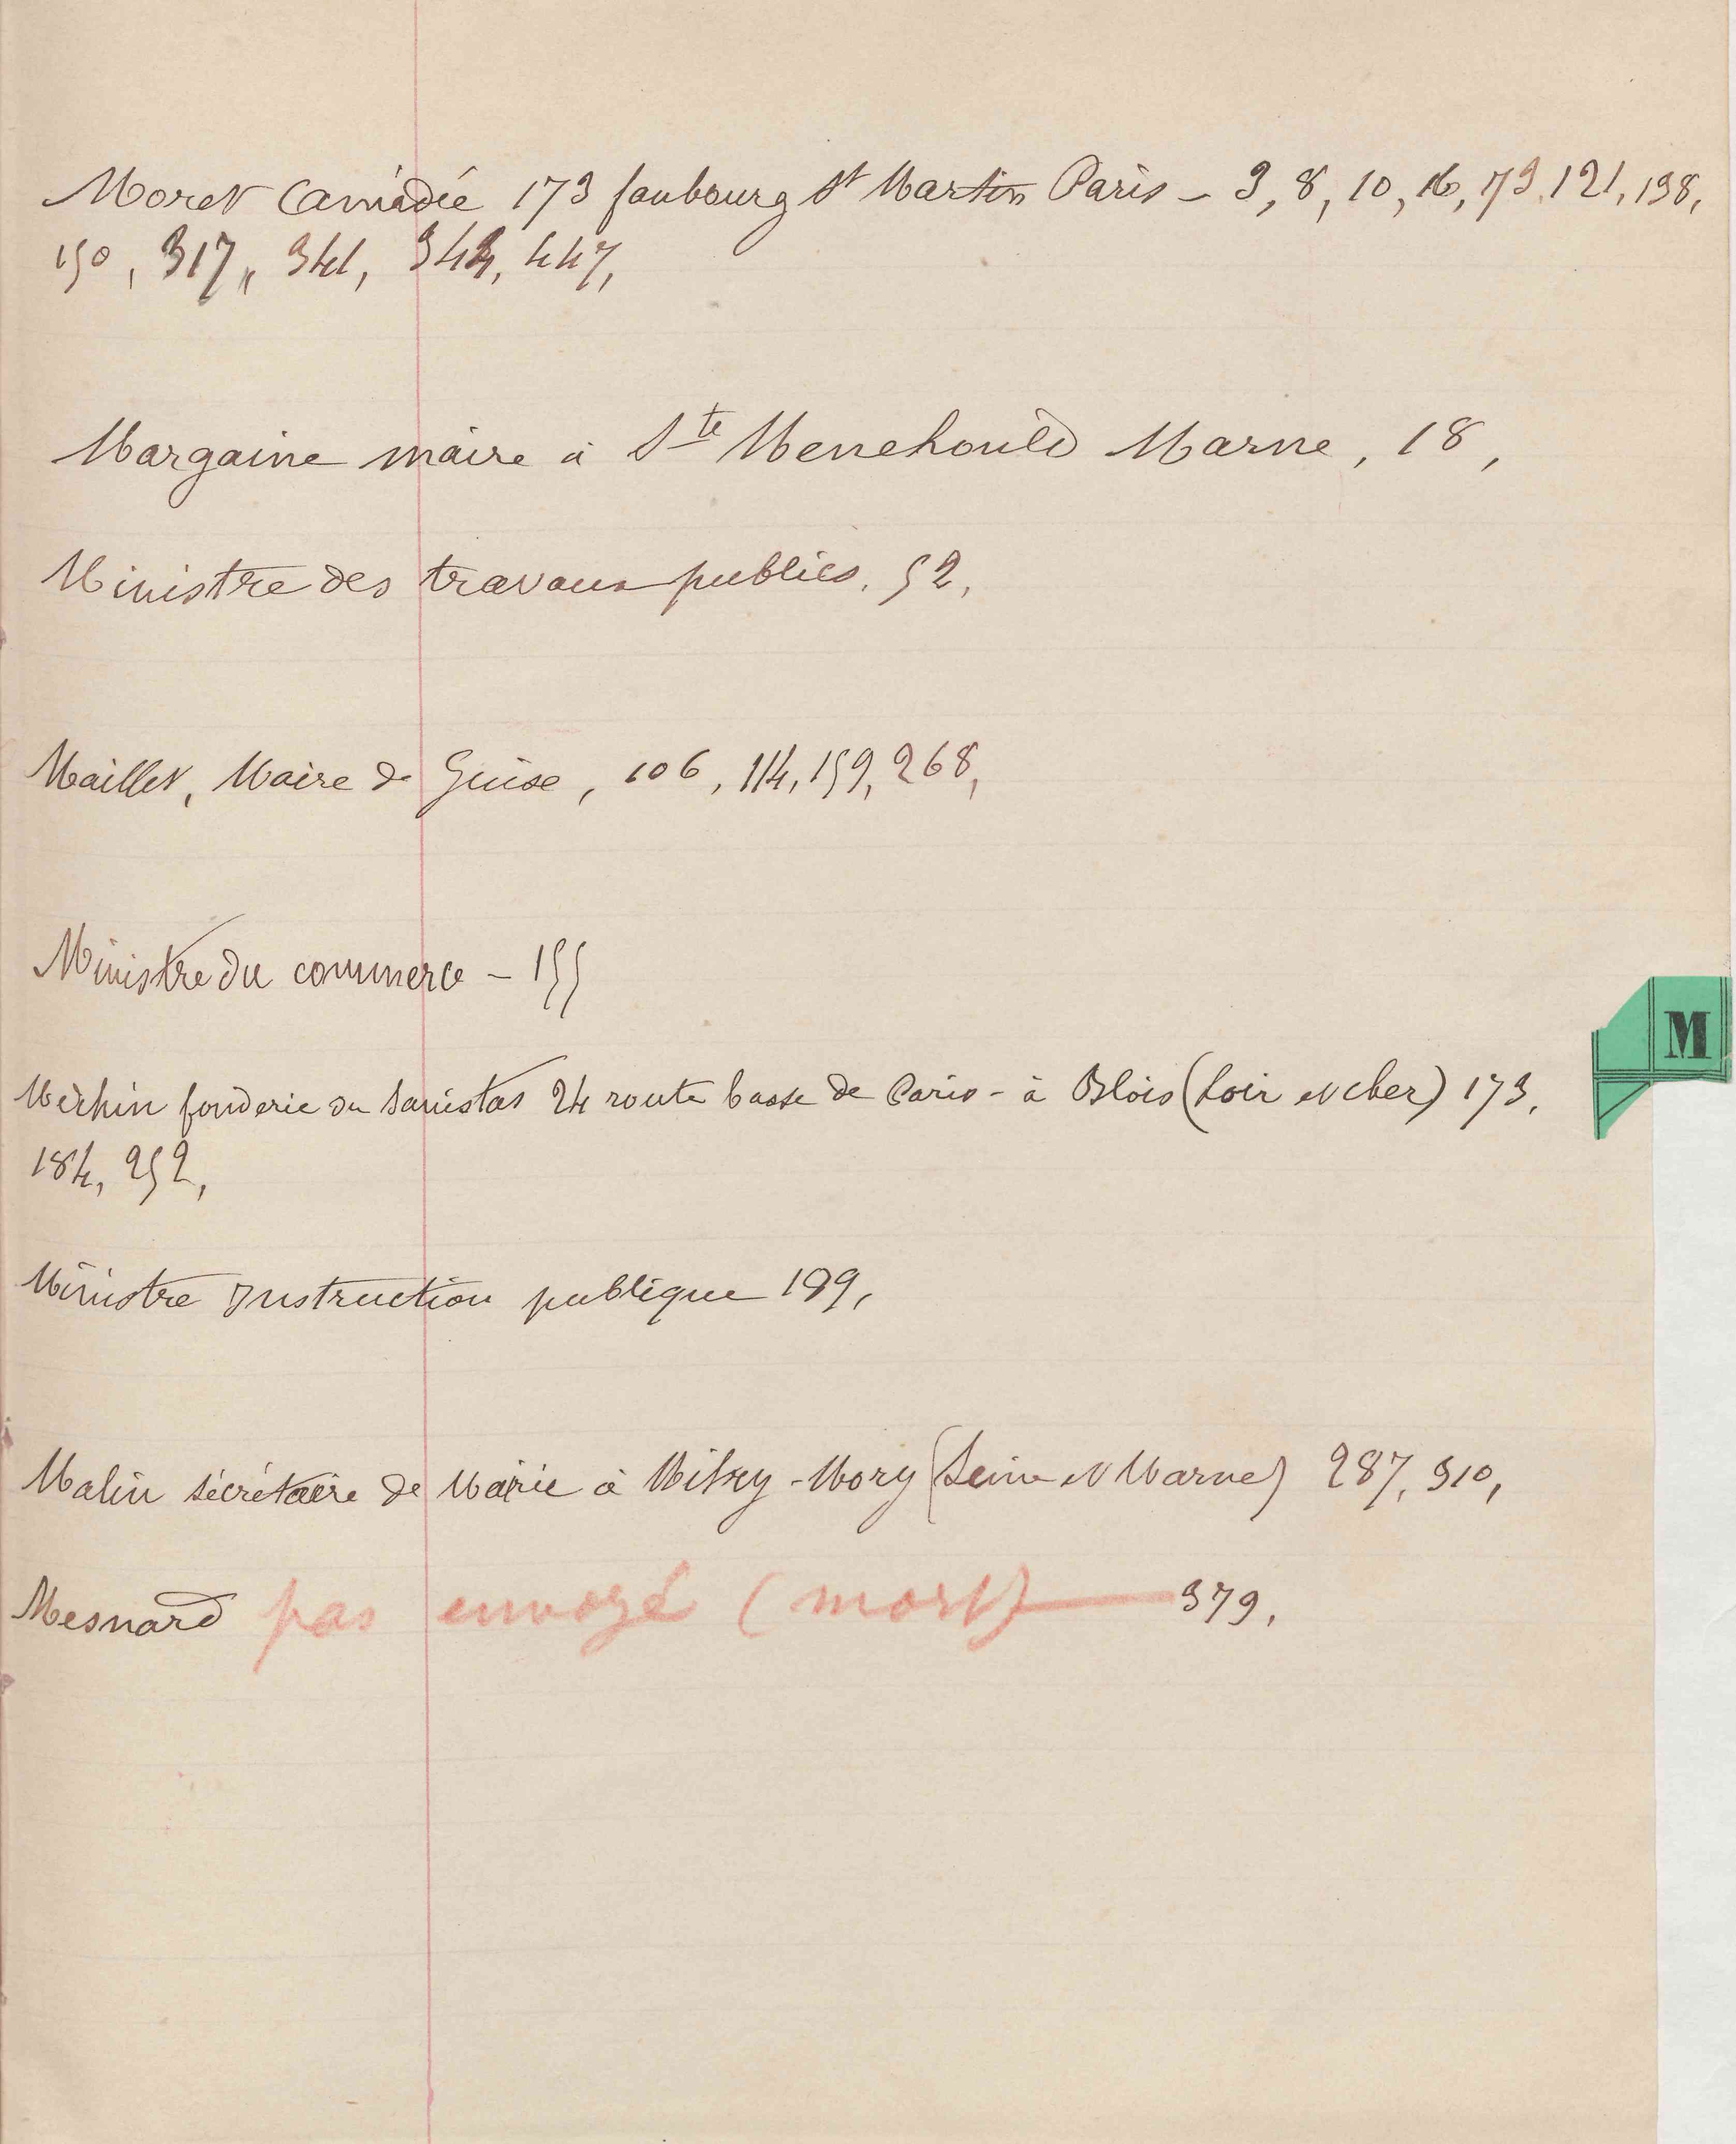 Moret Amédée 173 faubourg St Martin Paris – 3, 8, 10, 16, 73, 121, 138,
150, 317, 341, 344, 447,
Margaine maire à Ste Menehould Marne, 18,
Ministre des travaux publics, 52,
Maillet, Maire de Guise, 106, 114, 159, 268,
Ministre du commerce – 155
M
Méchin fonderie du Sanistas 24 route basse de Paris – à Blois (Loir et cher) 173,
184, 252,
Ministre Instruction publique 199,
Malin sécrétaire de Mairie à Mitry-Mory (Seine et Marne) 287, 310,
Mesnard pas envoyé (mort) — 379,